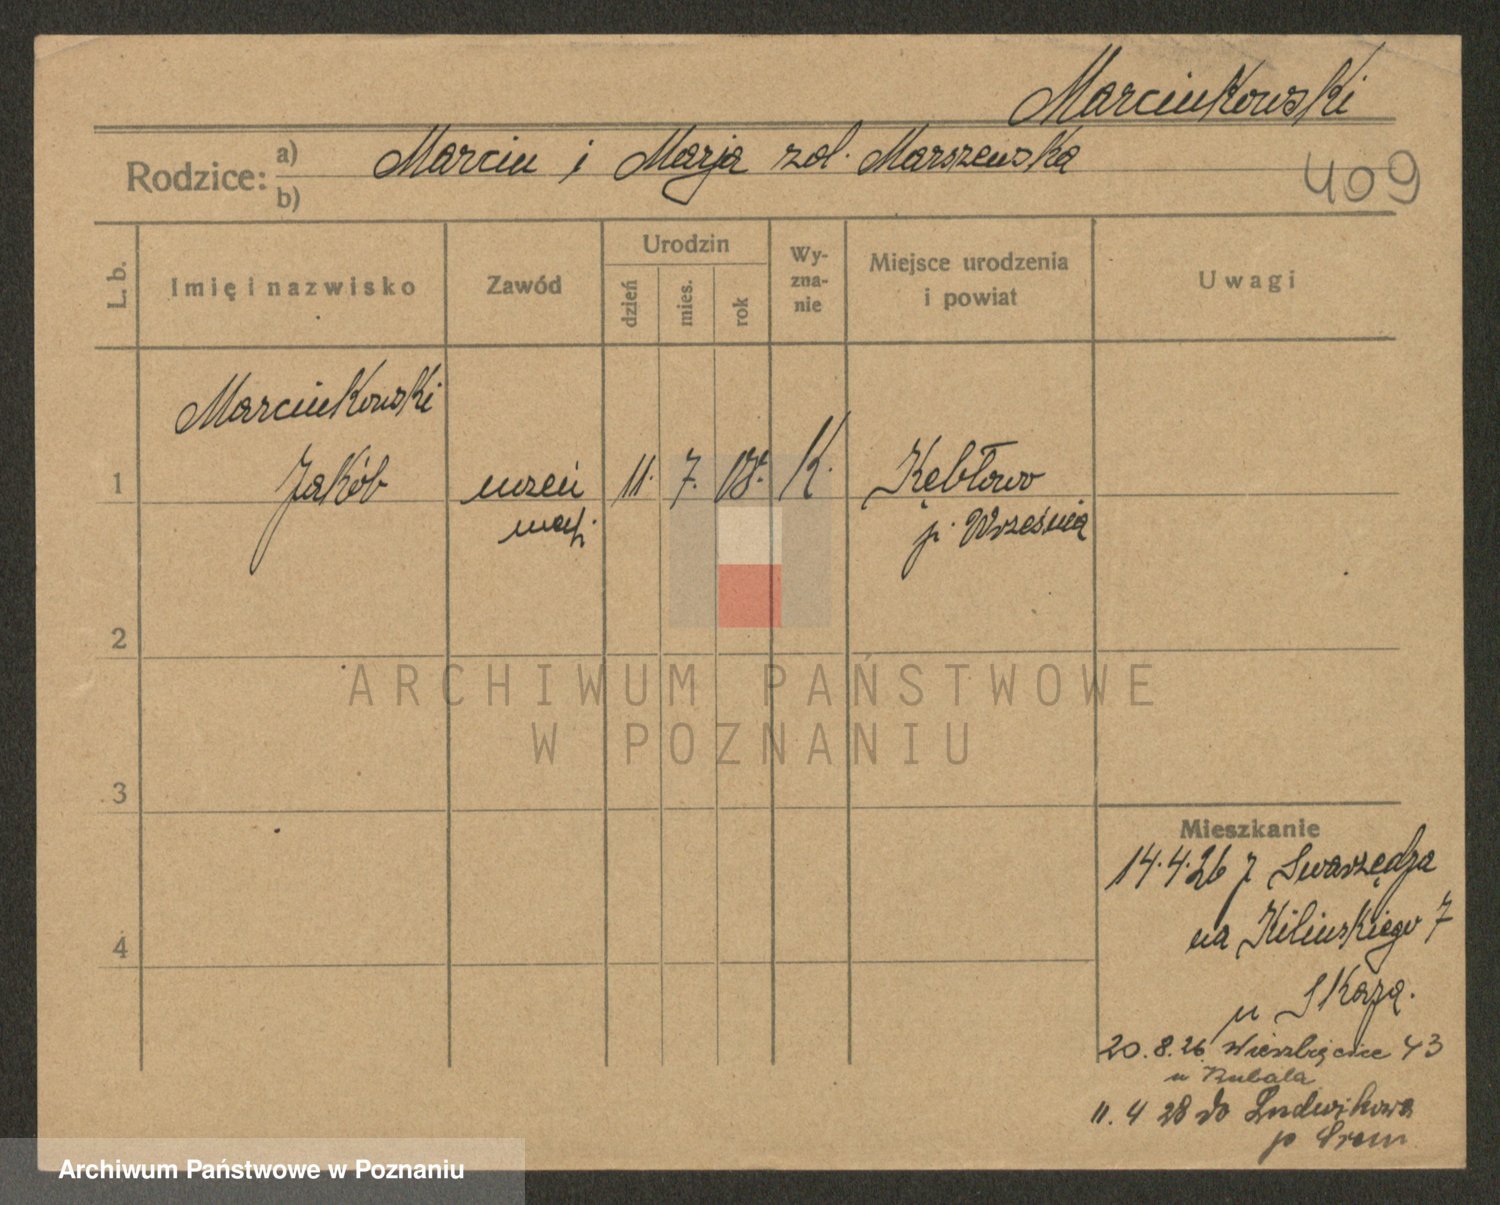 Marcinkowski
Rodzice: a) Marcin i Marja zd. Marszewska
b)
409
L. b. Imię i nazwisko Zawód Urodzin dzień mies. rok Wyzna-nie Miejsce urodzenia i powiat Uwagi
Marcinkowski
1 Jakób uczeń 11. 7. 08. K. Kębłowo
p. Września
2
ARCHIWUM PAŃSTWOWE
W POZNANIU
3
Mieszkanie
14.4.26 z Swarzędza
na Kilińskiego 7
4
u
20.8.26 Wierzbięcice 43
u Kubala
11.4 28 do Ludwikowa
p Śrem
Archiwum Państwowe w Poznaniu